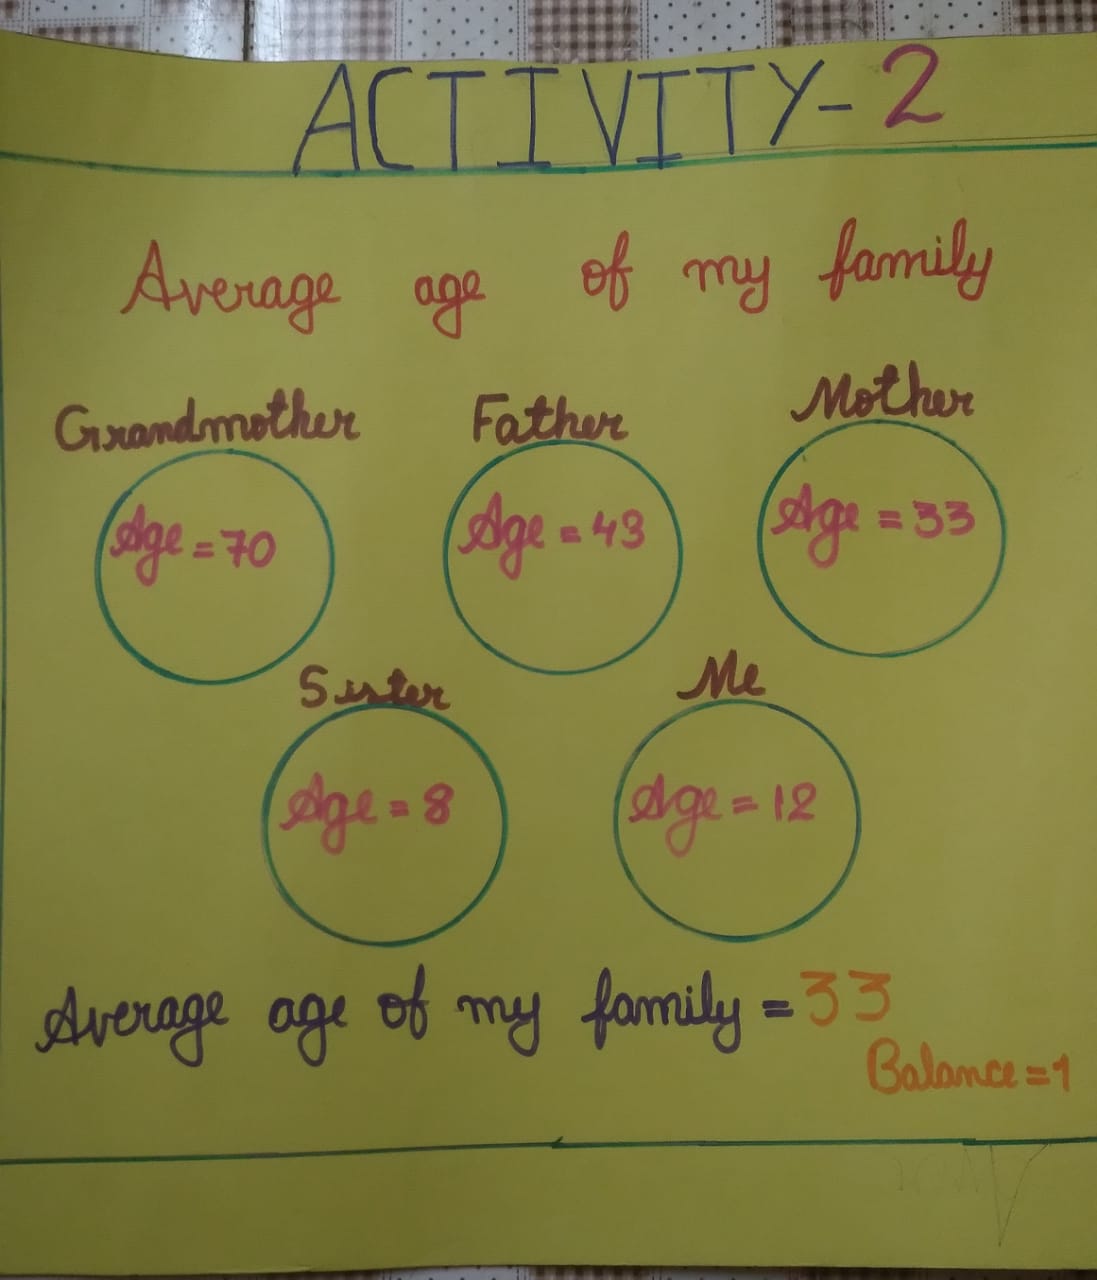 ACTIVITY-2
Average age of my family
Grandmother Father Mother
Age = 70 Age = 43 Age = 33
Sister Me
Age = 8 Age = 12
Average age of my family = 33
Balance = 1